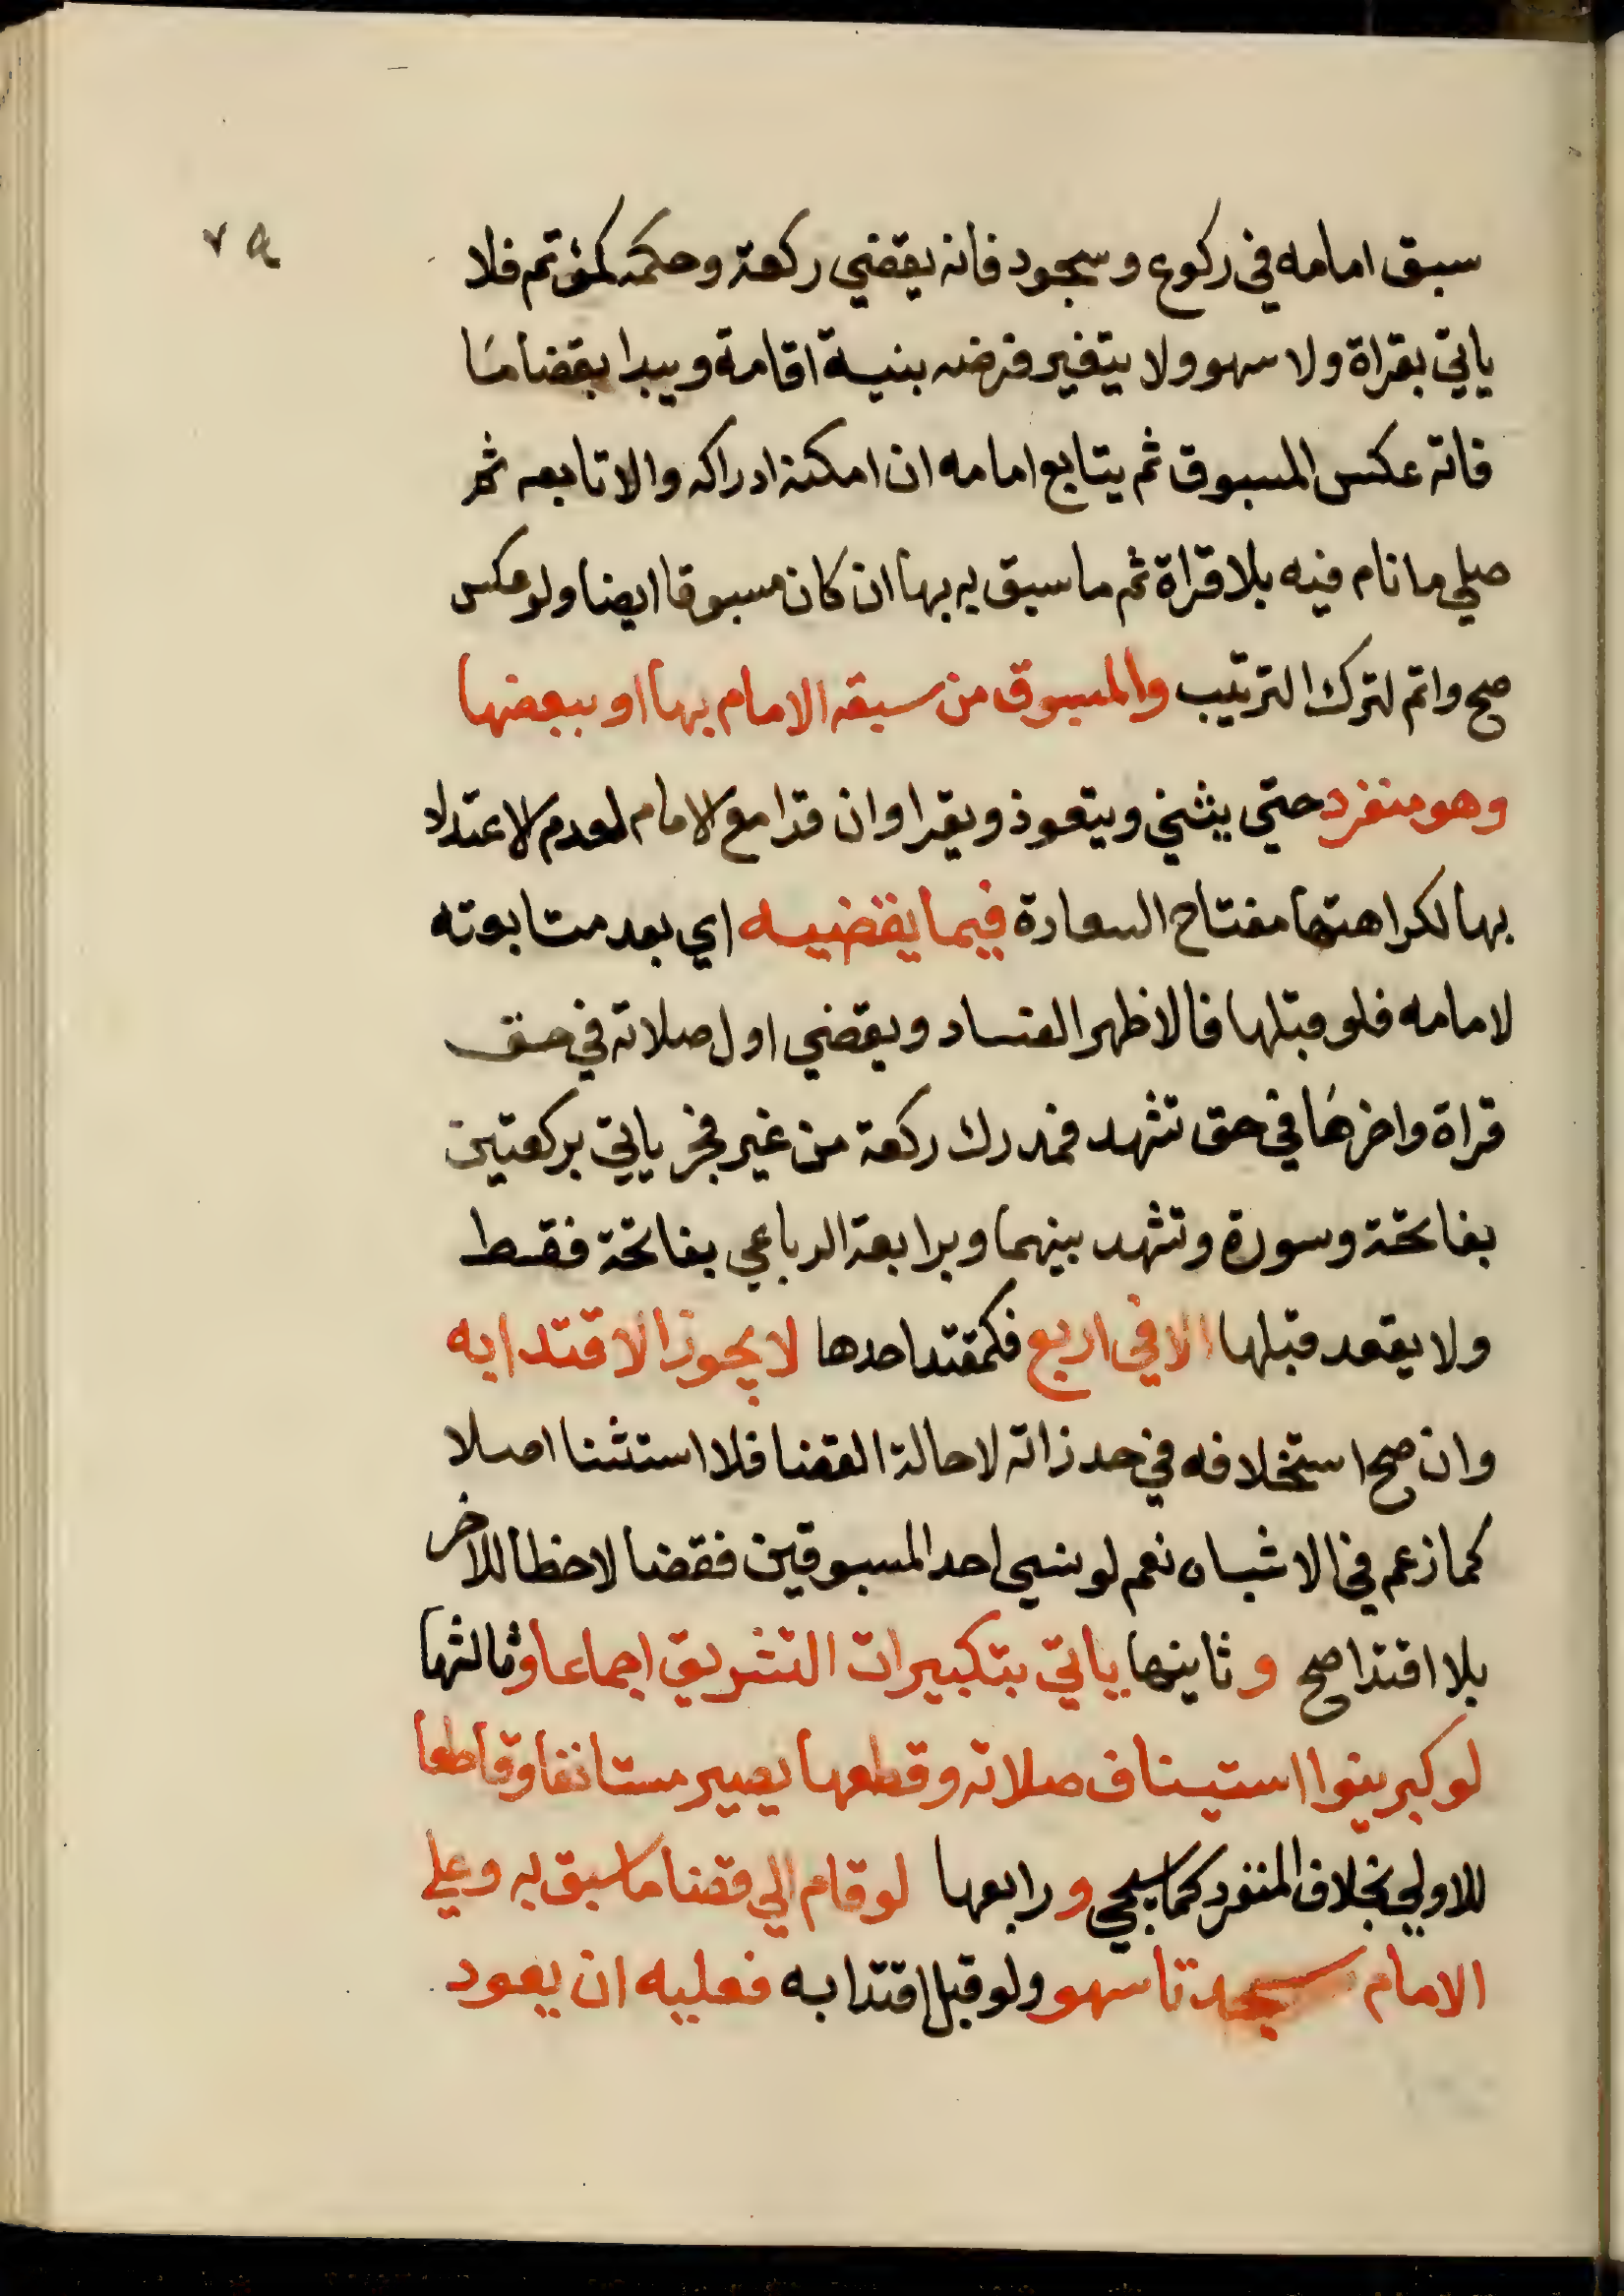 سبق امامه في ركوع وسجود فانه يقضي ركعة وحكمه كمؤتم فلا
ياتي بقراة ولا سهو ولا يتغير فرضه بنية اقامة ويبدا بقضا ما
فاته عكس المسبوق ثم يتابع امامه ان امكنه ادراكه والا تابعه ثم
صلي ما نام فيه بلا قراة ثم ما سبق به بها ان كان مسبوقا ايضا ولو عكس
صح واثم لترك الترتيب والمسبوق من سبقه الامام بها او ببعضها
وهو منفرد حتي يثني ويتعوذ ويقرا وان قرا مع الامام لعدم الاعتداد
بها لكراهتها مفتاح السعادة فيما يقضيه اي بعد متابعته
لامامه فلو قبلها فالاظهر الفساد ويقضي اول صلاته في حق
قراة واخرها في حق تشهد فمدرك ركعة من غير فجر ياتي بركعتين
بفاتحة وسورة وتشهد بينهما وبرابعة الرباعي بفاتحة فقط
ولا يقعد قبلها الا في اربع فكمقتد احدها لا يجوز الاقتدا به
وان صح استخلافه في حد ذاته لا حالة القضا فلا استثنا اصلا
كما زعم في الاشباه نعم لو نسي احد المسبوقين فقضا لاحظا للاخر
بلا اقتدا صح و ثانيها ياتي بتكبيرات التشريق اجماعا وثالثها
لو كبر ينوا استيناف صلاته وقطعها يصير مستانفا وقاطعا
للاولي بخلاف المنفرد كما سيجي و رابعها لو قام الي قضا ما سبق به وعلي
الامام سجدتا سهو ولو قبل اقتدا به فعليه ان يعود